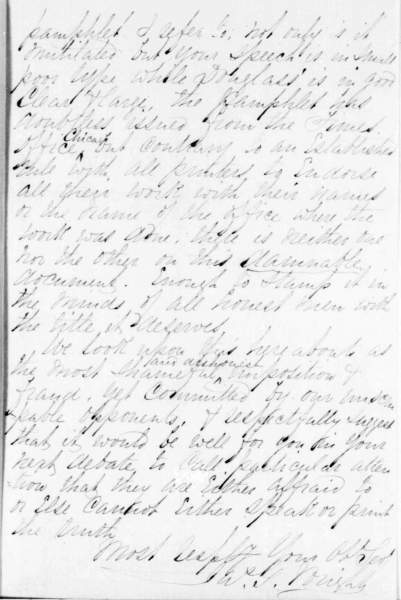 pamphlet & refer to, not only is it
mutilated but your speech is in small
poor type while Douglass' is in good
Clear & large, the Pamphlet was
doubtless issued from the Times
office Chicago but contrary to an Established
rule with all printers, to Endorse
all their work with their names
or the name of the office where the
work was done, there is neither one
nor the other on this damnable
document. Enough to Stamp it in
the minds of all honest men with
the title it deserves,
We look upon this here abouts as
the most Shameful and dishonest imposition &
fraud, yet Committed by our
opponents, & respectfully suggest
that it would be well for you in your
next debate, to Call particular atten
tion that they are Either affraid to
or Else Cannot Either Speak or print
the truth
Most Respfy Your Obt Svt
W. J. Wright